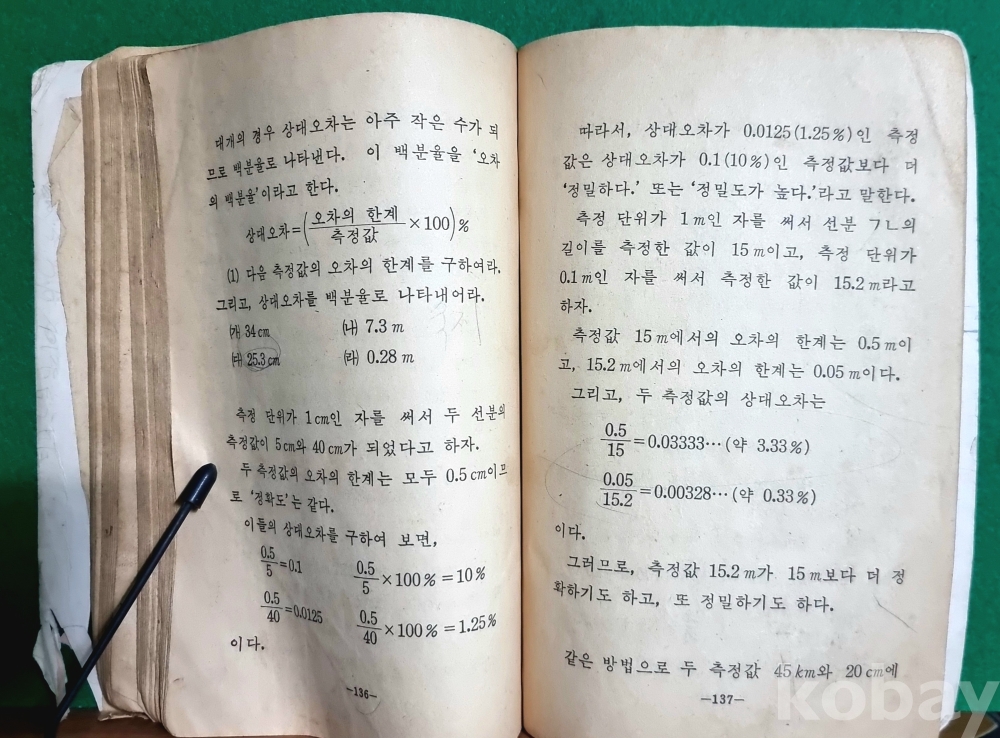 대개의 경우 상대오차는 아주 작은 수가 되
므로 백분율로 나타낸다. 이 백분율을 '오차
의 백분율'이라고 한다.
상대오차=(오차의 한계/측정값×100)%
(1) 다음 측정값의 오차의 한계를 구하여라.
그리고, 상대오차를 백분율로 나타내어라.
㈎ 34 cm ㈏ 7.3 m
㈐ 25.3 cm ㈑ 0.28 m
측정 단위가 1 cm인 자를 써서 두 선분의
측정값이 5 cm와 40 cm가 되었다고 하자.
두 측정값의 오차의 한계는 모두 0.5 cm이므
로 '정확도'는 같다.
이들의 상대오차를 구하여 보면,
0.5/5=0.1 0.5/5×100%=10%
0.5/40=0.0125 0.5/40×100%=1.25%
이다.
—136—
따라서, 상대오차가 0.0125(1.25%)인 측정
값은 상대오차가 0.1(10%)인 측정값보다 더
'정밀하다.' 또는 '정밀도가 높다.'라고 말한다.
측정 단위가 1 m인 자를 써서 선분 ㄱㄴ의
길이를 측정한 값이 15 m이고, 측정 단위가
0.1 m인 자를 써서 측정한 값이 15.2 m라고
하자.
측정값 15 m에서의 오차의 한계는 0.5 m이
고, 15.2 m에서의 오차의 한계는 0.05 m이다.
그리고, 두 측정값의 상대오차는
0.5/15=0.03333⋯(약 3.33%)
0.05/15.2=0.00328⋯(약 0.33%)
이다.
그러므로, 측정값 15.2 m가 15 m보다 더 정
확하기도 하고, 또 정밀하기도 하다.
같은 방법으로 두 측정값 45 km와 20 cm에
—137—
kobay